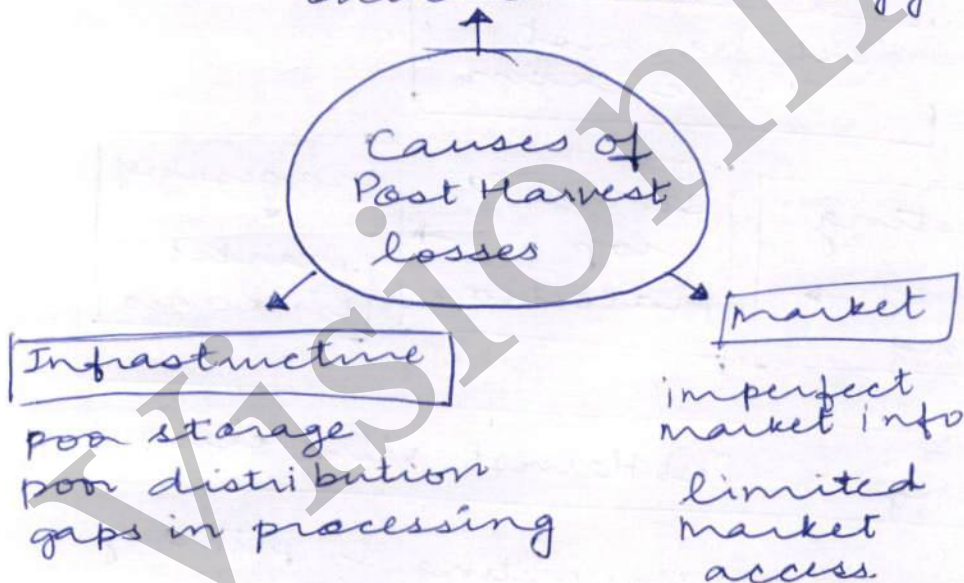 Causes of
Post Harvest
losses
Infrastructure
poor storage
poor distribution
gaps in processing
market
imperfect
market info
limited
market
access.
Vision